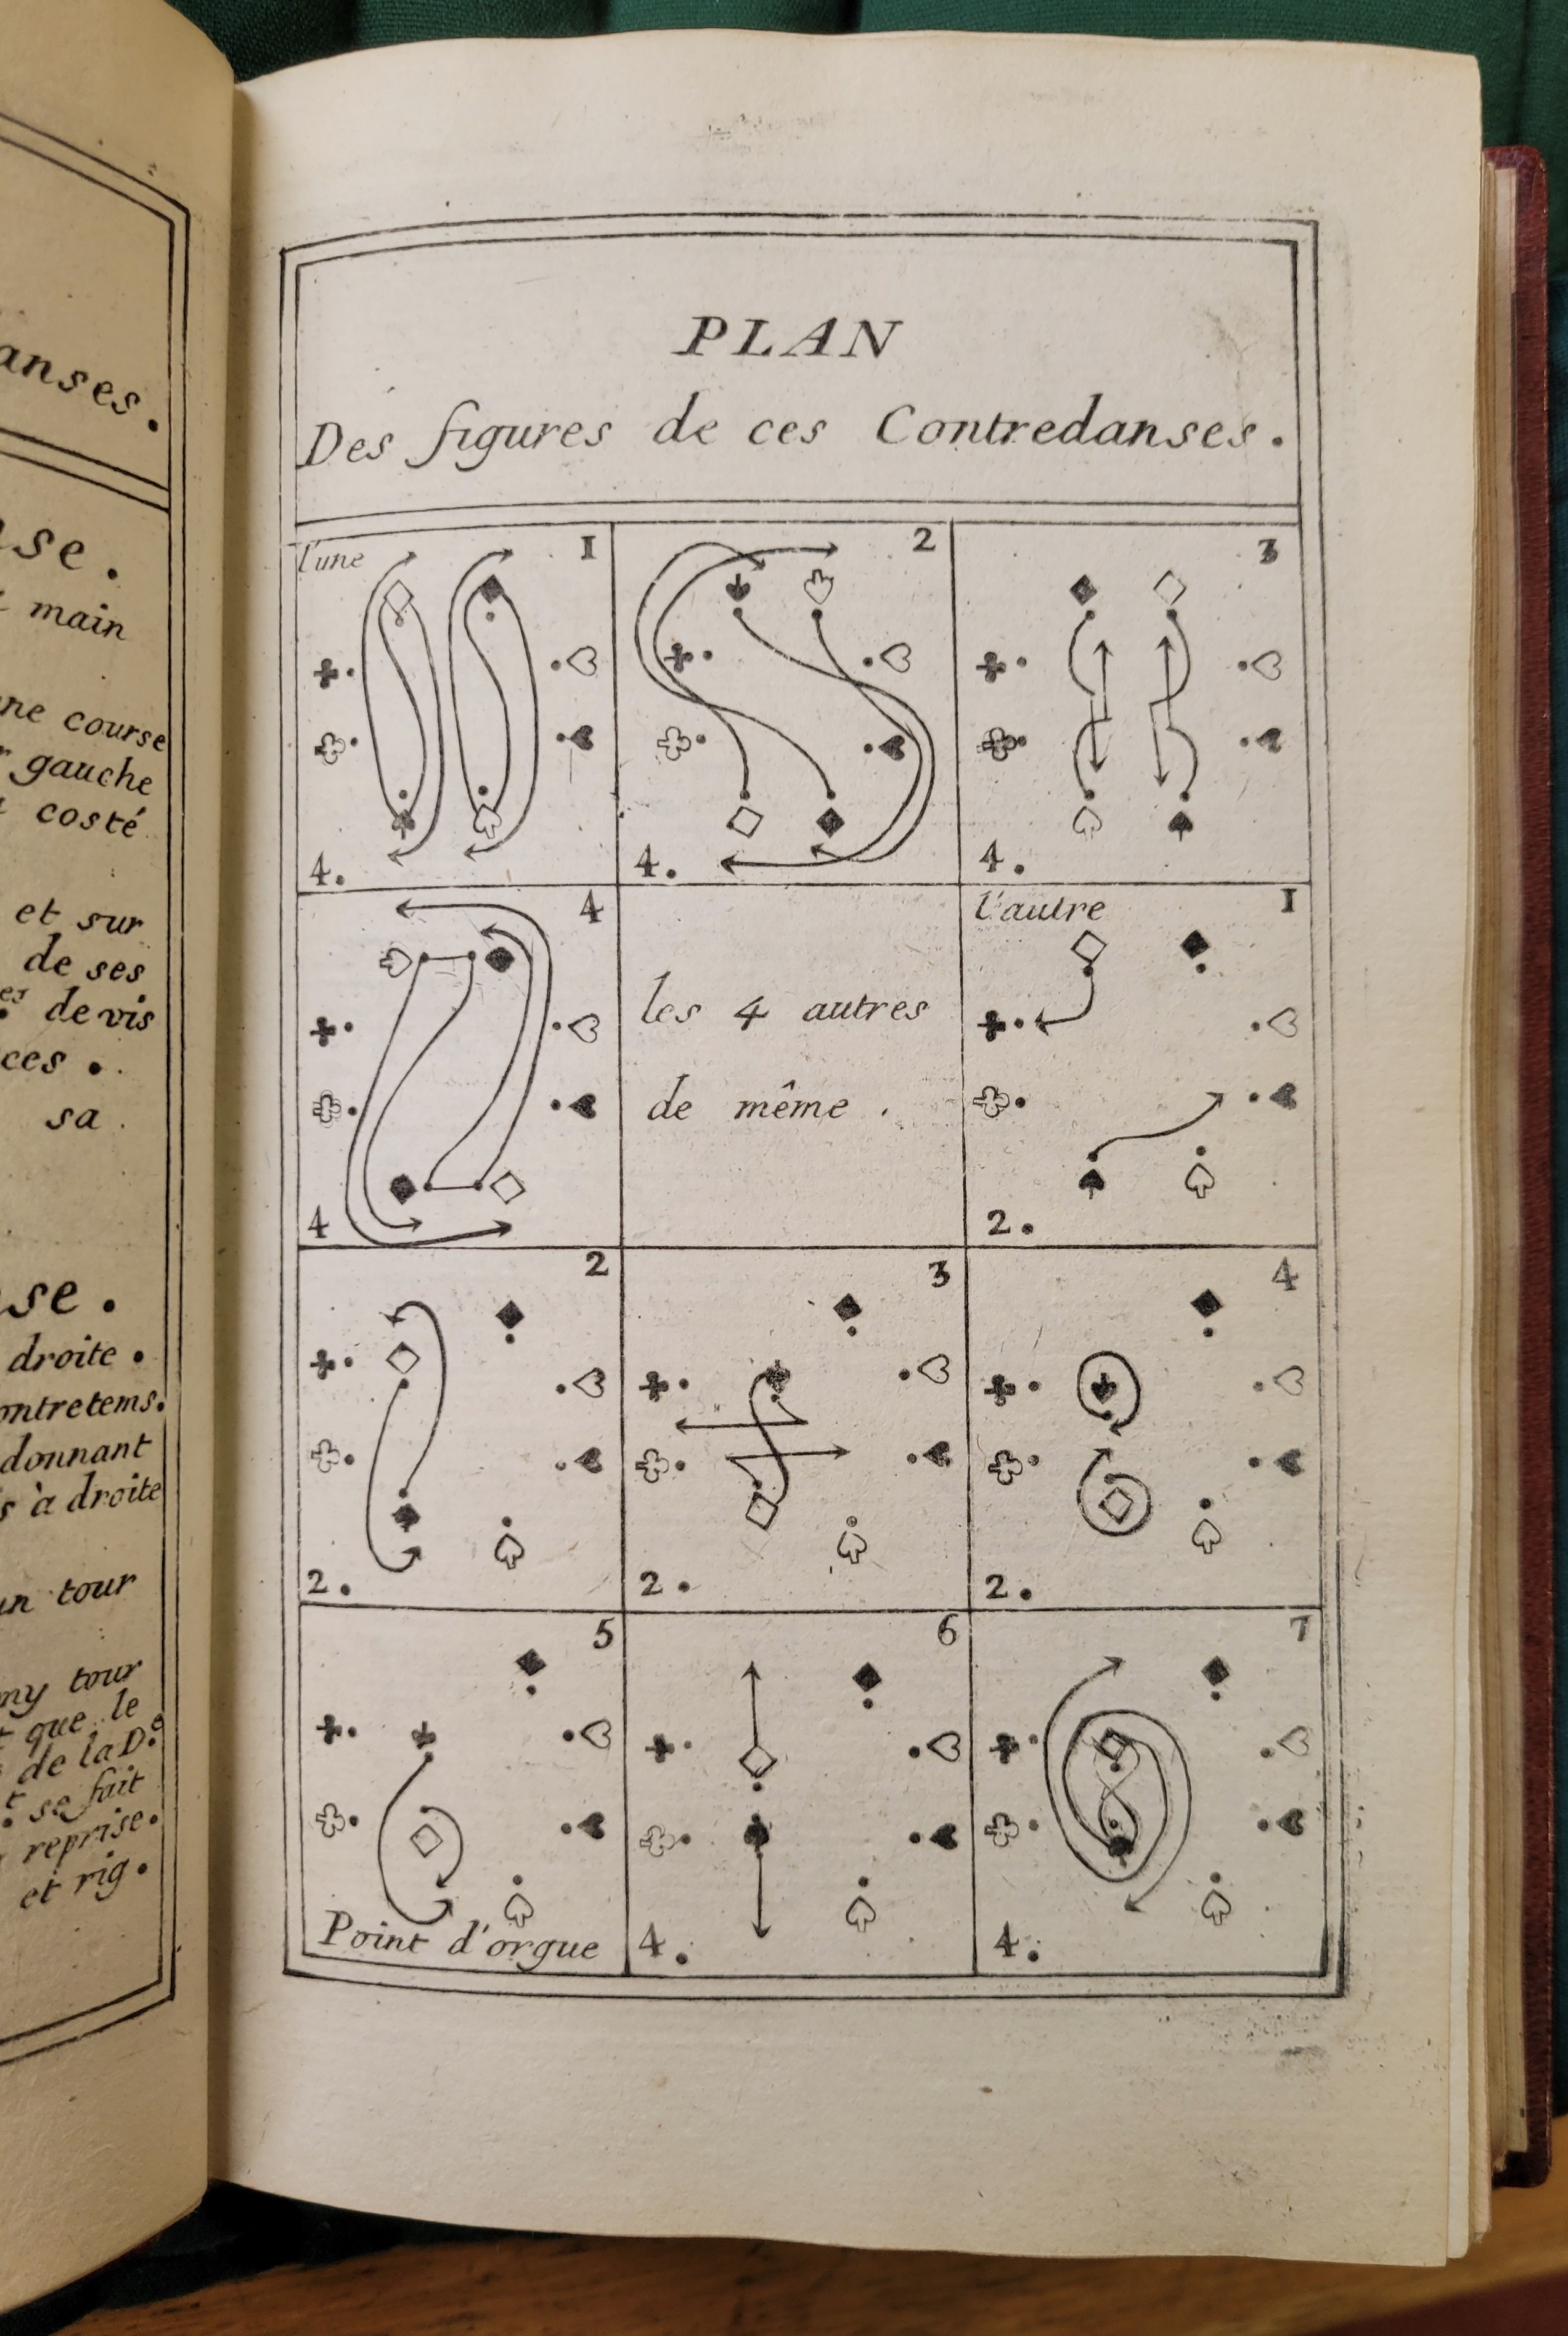 anses.
se.
main
ne course
gauche
costé
et sur
de ses
de vis
ces.
sa.
se.
droite.
ontretems.
donnant
s à droite
un tour
my tour
t que le
de la D.e
t se fait
reprise.
et rig.
PLAN
Des figures de ces Contredanses.
l'une 1
4.
2
4.
3
4.
4
4
les 4 autres
de même.
l'autre 1
2.
2
2.
3
2.
4
2.
5
Point d'orgue
6
4.
7
4.